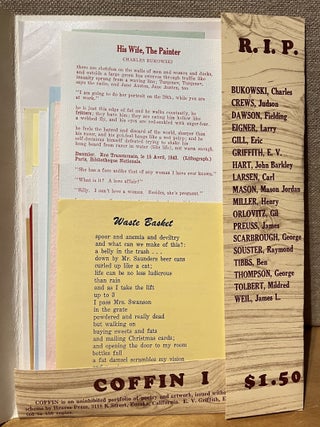 His Wife, The Painter
CHARLES BUKOWSKI
there are sketches on the walls of men and women and ducks,
and outside a large green bus swerves through traffic like
insanity sprung from a waving line; Turgenev, Turgenev,
says the radio, and Jane Austen, Jane Austen, too
"I am going to do her portrait on the 28th, while you are
at work."
he is just this edge of fat and he walks constantly, he
fritters; they have him; they are eating him hollow like
a webbed fly, and his eyes are red-suckled with anger-fear.
he feels the hatred and discard of the world, sharper than
his razor, and his gut-feel hangs like a wet polyp; and he
self-decisions himself defeated trying to shake his
hung beard from razor in water (like life), not warm enough.
Daumier. Rue Transnonain, le 15 Avril, 1843. (Lithograph.)
Paris, Bibliotheque Nationale.
"She has a face unlike that of any woman I have ever known."
"What is it? A love affair?"
"Silly. I can't love a woman. Besides, she's pregnant."
Waste Basket
spoor and anemia and deviltry
and what can we make of this?:
a belly in the trash . . .
down by Mr. Saunders beer cans
curled up like a cat;
life can be no less ludicrous
than rain
and as I take the lift
up to 3
I pass Mrs. Swanson
in the grate
powdered and really dead
but walking on
buying sweets and fats
and mailing Christmas cards;
and opening the door to my room
bottles fall
a fat damsel scrambles my vision
R. I. P.
BUKOWSKI, Charles
CREWS, Judson
DAWSON, Fielding
EIGNER, Larry
GILL, Eric
GRIFFITH, E. V.
HART, John Barkley
LARSEN, Carl
MASON, Mason Jordan
MILLER, Henry
ORLOVITZ, Gil
PREUSS, James
SCARBROUGH, George
SOUSTER, Raymond
TIBBS, Ben
THOMPSON, George
TOLBERT, Mildred
WEIL, James L.
COFFIN I
$1.50
COFFIN is an uninhibited portfolio of poetry and artwork, issued
scheme by Hearse Press, 3118 K Street, Eureka, California. E. V. Griffith, E